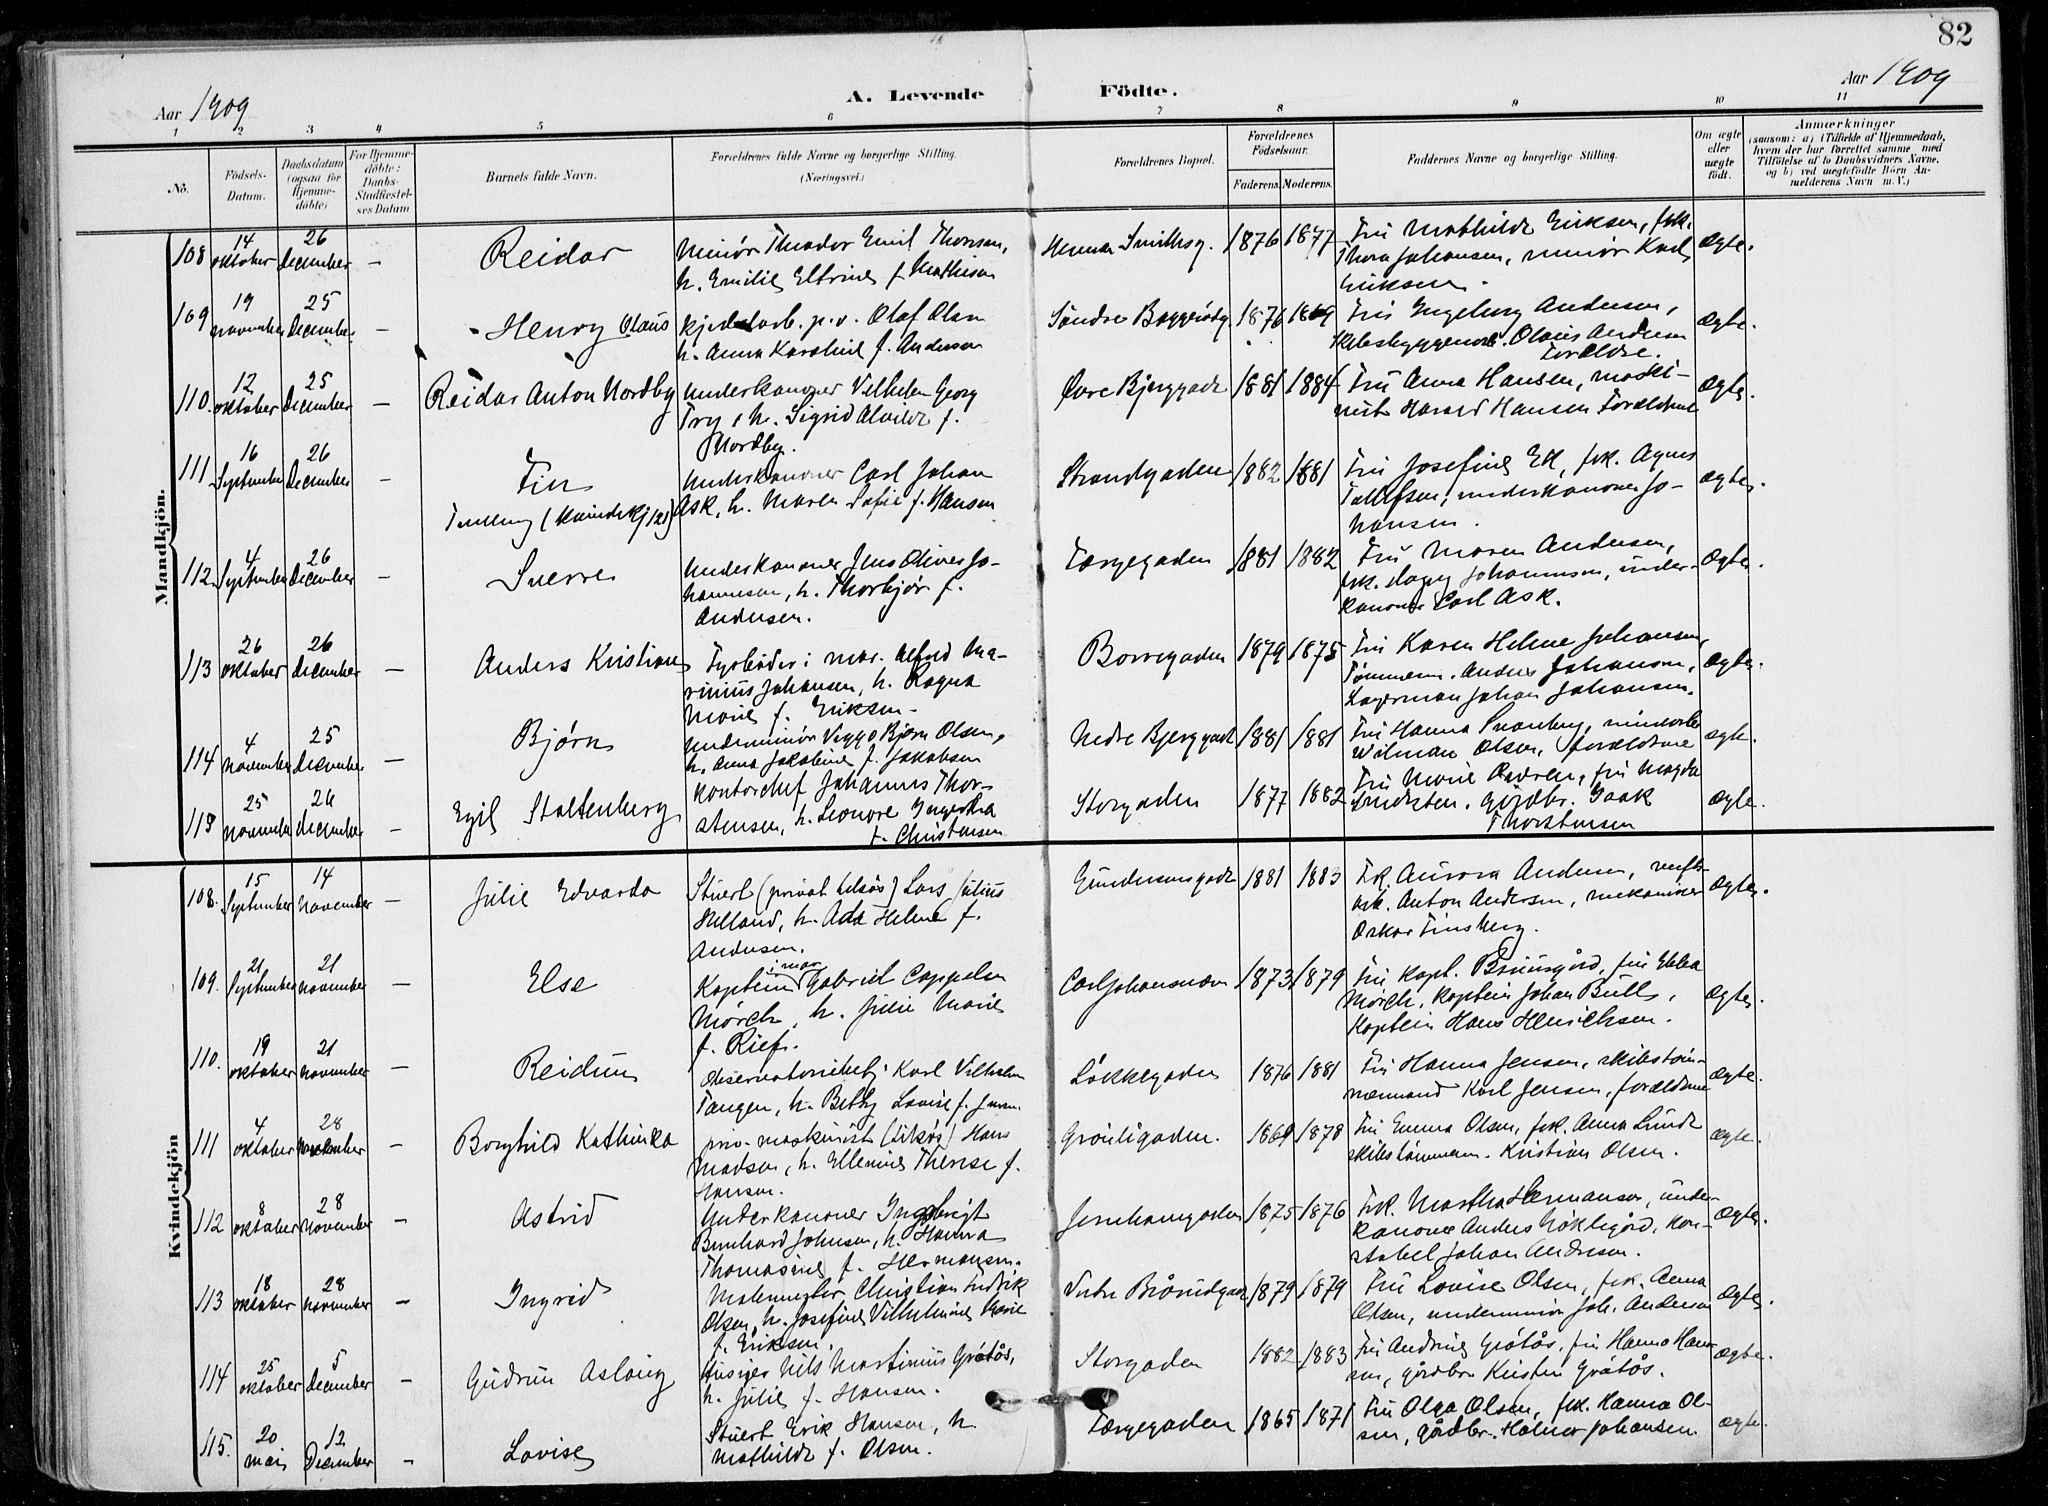 82
Aar 1909
A. Levende Födte.
Aar 1909
1 2 3 4 5 6 7 8 9 10 11
No.
Födsels-
Datum.
Daabsdatum
(ogsaa for
Hjemme-
döbte)
For Hjemme-
döbte:
Daabs-
Stadfæstel-
ses Datum
Barnets fulde Navn.
Forældrenes fulde Navne og borgerlige Stilling.
(Næringsvei.)
Forældrenes Bopæl.
Forældrenes
Födselsaar.
Faderens. Moderens.
Faddernes Navne og borgerlige Stilling.
Om ægte
eller
uægte
födt.
Anmærkninger
(saasom: a) i Tilfælde af Hjemmedaab,
hvem der har forrettet samme med
Tilföielse af to Daabsvidners Navne,
og b) ved uægtefödte Börn An-
melderens Navn m. V.)
Mandkjön.
108 14 oktober 26 December – Reidar
Minør Theodor Emil Thoresen,
h. Emilie Eltrine f. Mathisen
Herman Smithsg. 1876 1877
Fru Mathilde Eriksen, frk.
Thora Johansen, minør Karl
Eriksen.
ægte.
109 19 november 25 December – Henry Olaus
Kjedelarb. p.v. Olaf Olsen
h. Anna Karoline f. Andersen
Søndre 1876 1869
Fru Ingeborg Andersen,
Olaus Andersen
Forældre.
ægte.
110. 12 oktober 25 December – Reidar Anton Nordby
Underkanoner Vilhelm Georg
Try, h. Sigrid Alvilde f.
Nordby.
Øvre Bjerggade 1881 1884
Fru Anna Hansen, maski-
nist Harald Hansen Forældrene
ægte.
111 16 September 26 December – Finn
Tvilling (Kvindekj 121)
Underkanoner Carl Johan
Ask, h. Maren Sofie f. Hansen
Strandgaden 1882 1881
Fru Josefine Ek, frk. Agnes
Tollefsen, underkanoner Jo-
hansen.
ægte.
112. 4 September 26 December – Sverre
Underkanoner Jens Oliver Jo-
hannesen, h. Thorbjør f.
Andersen.
Færgegaden 1881 1882
Fru Maren Andersen,
frk. Dagny Johannesen, under-
kanoner Carl Ask.
ægte.
113 26 oktober 26 december – Anders Kristian
Fyrbøder i mar. Alfred Ma-
rinius Johansen, h. Ragna
Marie f. Eriksen.
Borregaden 1879 1875
Fru Karen Helene Johansen,
Tømmerm. Anders Johansen,
Lagerman Johan Johansen.
ægte.
114 4 november 25 december – Bjørn
Underminør Viggo Bjørn Olsen,
h. Anna Jakobine f. Jakobsen
Nedre Bjerggade 1881 1881
Fru Hanna Svanberg,
Wilman Olsen, forældrene
ægte.
115 25 november 26 december – Egil Stoltenberg
Kontorchef Johannes Thor-
stensen, h. Leonore Ingeborg
f. Christensen
Storgaden 1877 1882
Fru Marie fru Magda
Gårdbr. Isak
Thorstensen
ægte.
Kvindekjön
108. 15 September 14 november – Julie Edvarda
Stuert (privat tilsøs) Lars Julius
Helland, h. Ada Helene f.
Andersen.
Gundersensgade 1881 1883
Frk. Aurora Andersen, verfts-
arb. Anton Andersen, mekaniker
Oskar Finsberg.
ægte.
109. 21 September 21 november – Else
Kaptein i mar. Gabriel Cappelen
Mørch, h. Julie Marie
f. Riefs.
Carljohansværn 1873 1879
Fru Kapt. Bruusgård, fru Ebba
Mørch, Kaptein Johan Bull,
Kaptein Hans Henrichsen.
ægte.
110. 19 oktober 21 november – Reidun
Observatoriebetj. Karl Vilhelm
Tangen, h. Betty Lovise f. Jensen
Løkkegaden 1876 1881
Fru Hanna Jensen, skibstøm-
mermand Karl Jensen, forældrene
ægte.
111 4 oktober 28 november – Borghild Kathinka
priv. maskinist (tilsøs) Hans
Madsen, h. Ellenine Therese f.
Hansen.
Grønligaden. 1869 1878
Fru Emma Olsen, frk. Anna Lund
skibstømmerm. Kristian Olsen.
ægte.
112 8 oktober 28 november – Astrid
Underkanoner Ingebrigt
Bernhard Johnsen, h. Hanna
Thomasine f. Hermansen.
Jernbanegaden 1875 1876
Frk. Martha Hermansen, under-
kanoner Anders Nøklegård, Kon-
stabel Johan Andersen.
ægte.
113 18 oktober 28 november – Ingrid
Malermester Christian Fredrik
Olsen, h. Josefine Vilhelmine Marie
f. Eriksen.
Vestre Brårudgade 1879 1879
Fru Lovise Olsen, frk. Anna
Olsen, underminør Joh. Andersen
ægte.
114 25 oktober 5 december – Gudrun Aslaug
Huseier Nils Martinius Gråtås,
h. Julie f. Hansen.
Storgaden 1882 1883
Fru Andrine Gråtås, fru Hanna Han-
sen, gårdbr. Kristen Gråtås.
ægte.
115. 20 mai 12 December – Lovise
Stuert Erik Hansen, h.
Mathilde f. Olsen.
Færgegaden 1865 1871
Fru Olga Olsen, frk. Hanna Ol-
sen, gårdbr. Halvor Johansen.
ægte.